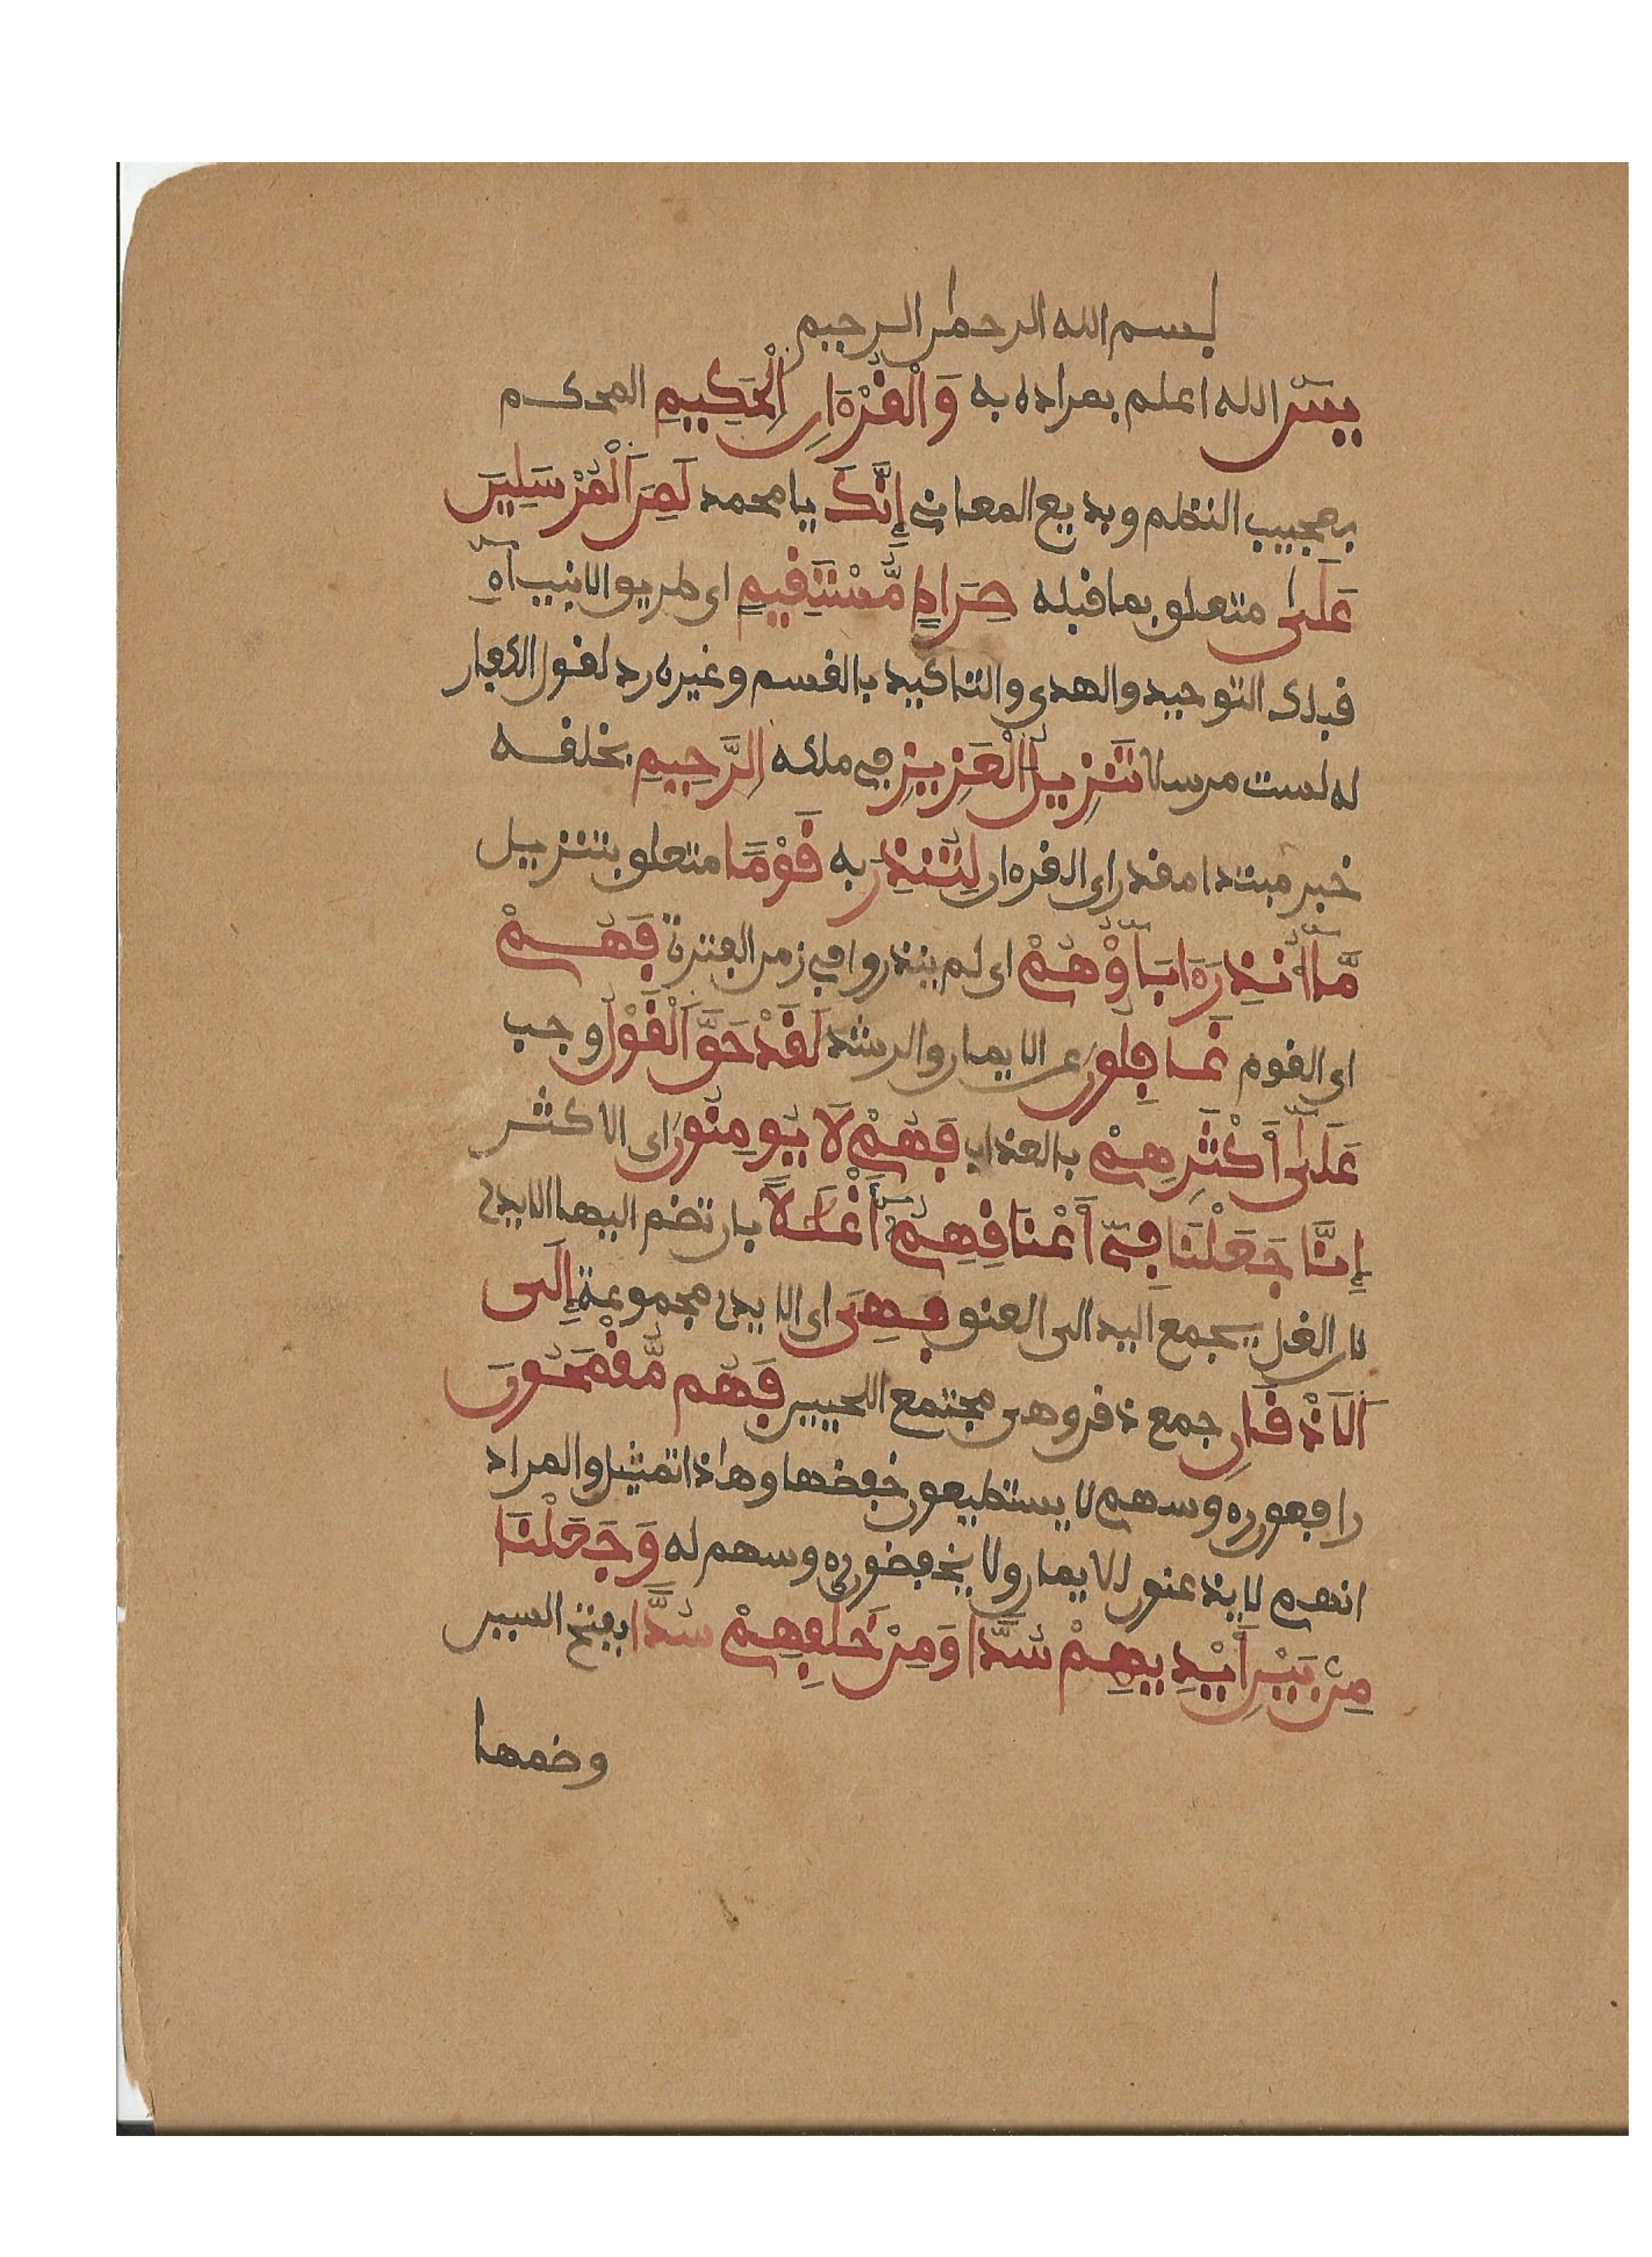 بسم الله الرحمن الرحيم
يسٓ الله اعلم بمراده به وَالْقُرْءَانِ اِلْحَكِيمِ المحكم
بعجيب النظم وبديع المعاني إِنَّكَ يا محمد لَمِنَ اَلْمُرْسَلِينَ
عَلَىٰ متعلق بما قبله صِرَاطٍ مُّسْتَقِيمٍ اى طريق الانبيآءِ
قبلك التوحيد والهدى والتاكيد بالقسم وغيره رد لقول الكفار
له لست مرسلا تَنزِيلُ اَلْعَزِيزِ في ملكه اِلرَّحِيمِ بخلقه
خبر مبتدا مقدر اى القرءان لِتُنذِرَ به قَوْمًا متعلق بتنزيل
مَّآ أُنذِرَ ءَابَآؤُهُمْ اى لم ينذروا في زمن الفترة فَهُمْ
اى القوم غَافِلُونَ عن الايمان والرشد لَقَدْ حَقَّ اَلْقَوْلُ وجب
عَلَىٰٓ أَكْثَرِهِمْ بالعذاب فَهُمْ لَا يُومِنُونَ اى الاكثر
إِنَّا جَعَلْنَا فِىٓ أَعْنَاقِهِمُۥٓ أَغْلَٰلًا بان تضم اليها الايدى
لان الغل يجمع اليد الى العنق فَهِىَ اى الايدى مجموعة إِلَى
اَلَاذْقَانِ جمع ذقن وهى مجتمع اللحيين فَهُم مُّقْمَحُونَ
رافعون رءوسهم لا يستطيعون خفضها وهذا تمثيل والمراد
انهم لا يذعنون للايمان ولا يخفضون رءوسهم له وَجَعَلْنَا
مِنۢ بَيْنِ أَيْدِيهِمْ سُدًّا وَمِنْ خَلْفِهِمْ سُدًّا بفتح السين
وضمها